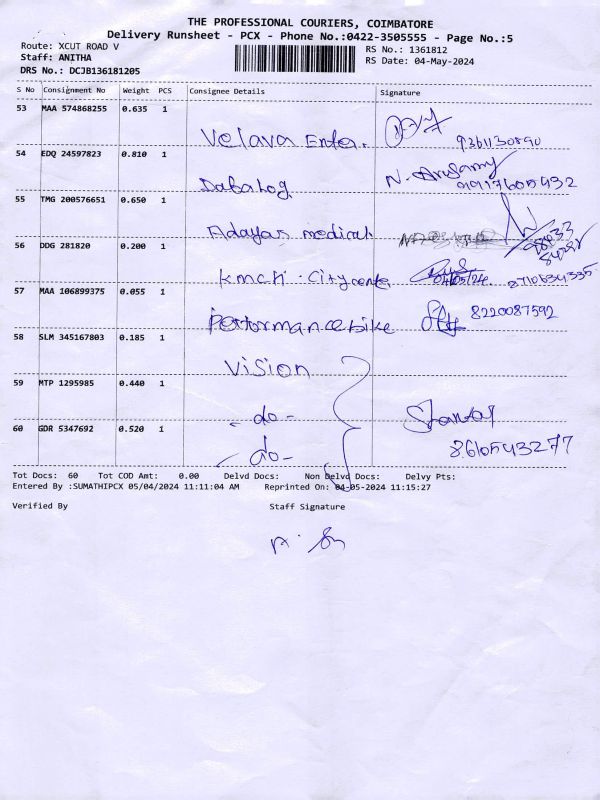 THE PROFESSIONAL COURIERS, COIMBATORE
Delivery Runsheet - PCX - Phone No.:0422-3505555 - Page No.:5
Route: XCUT ROAD V
RS No.: 1361812
Staff: ANITHA
RS Date: 04-May-2024
DRS No.: DCJB136181205
S No Consignment No Weight PCS Consignee Details Signature
53 MAA 574868255 0.635 1
Velava Enter. 9361130890
54 EDQ 24597823 0.810 1
N. Arusamy
Databog 919117605432
55 TMG 200576651 0.650 1
Adayar medical
56 DDG 281820 0.200 1
kmch . City center 04/05/24 8710634335
57 MAA 106899375 0.055 1
Performance bike 8220087592
58 SLM 345167803 0.185 1
Vision
59 MTP 1295985 0.440 1
- do -
60 GDR 5347692 0.520 1
- do - 8610543277
Tot Docs: 60 Tot COD Amt: 0.00 Delvd Docs: Non Delvd Docs: Delvy Pts:
Entered By :SUMATHIPCX 05/04/2024 11:11:04 AM Reprinted On: 04-05-2024 11:15:27
Verified By Staff Signature